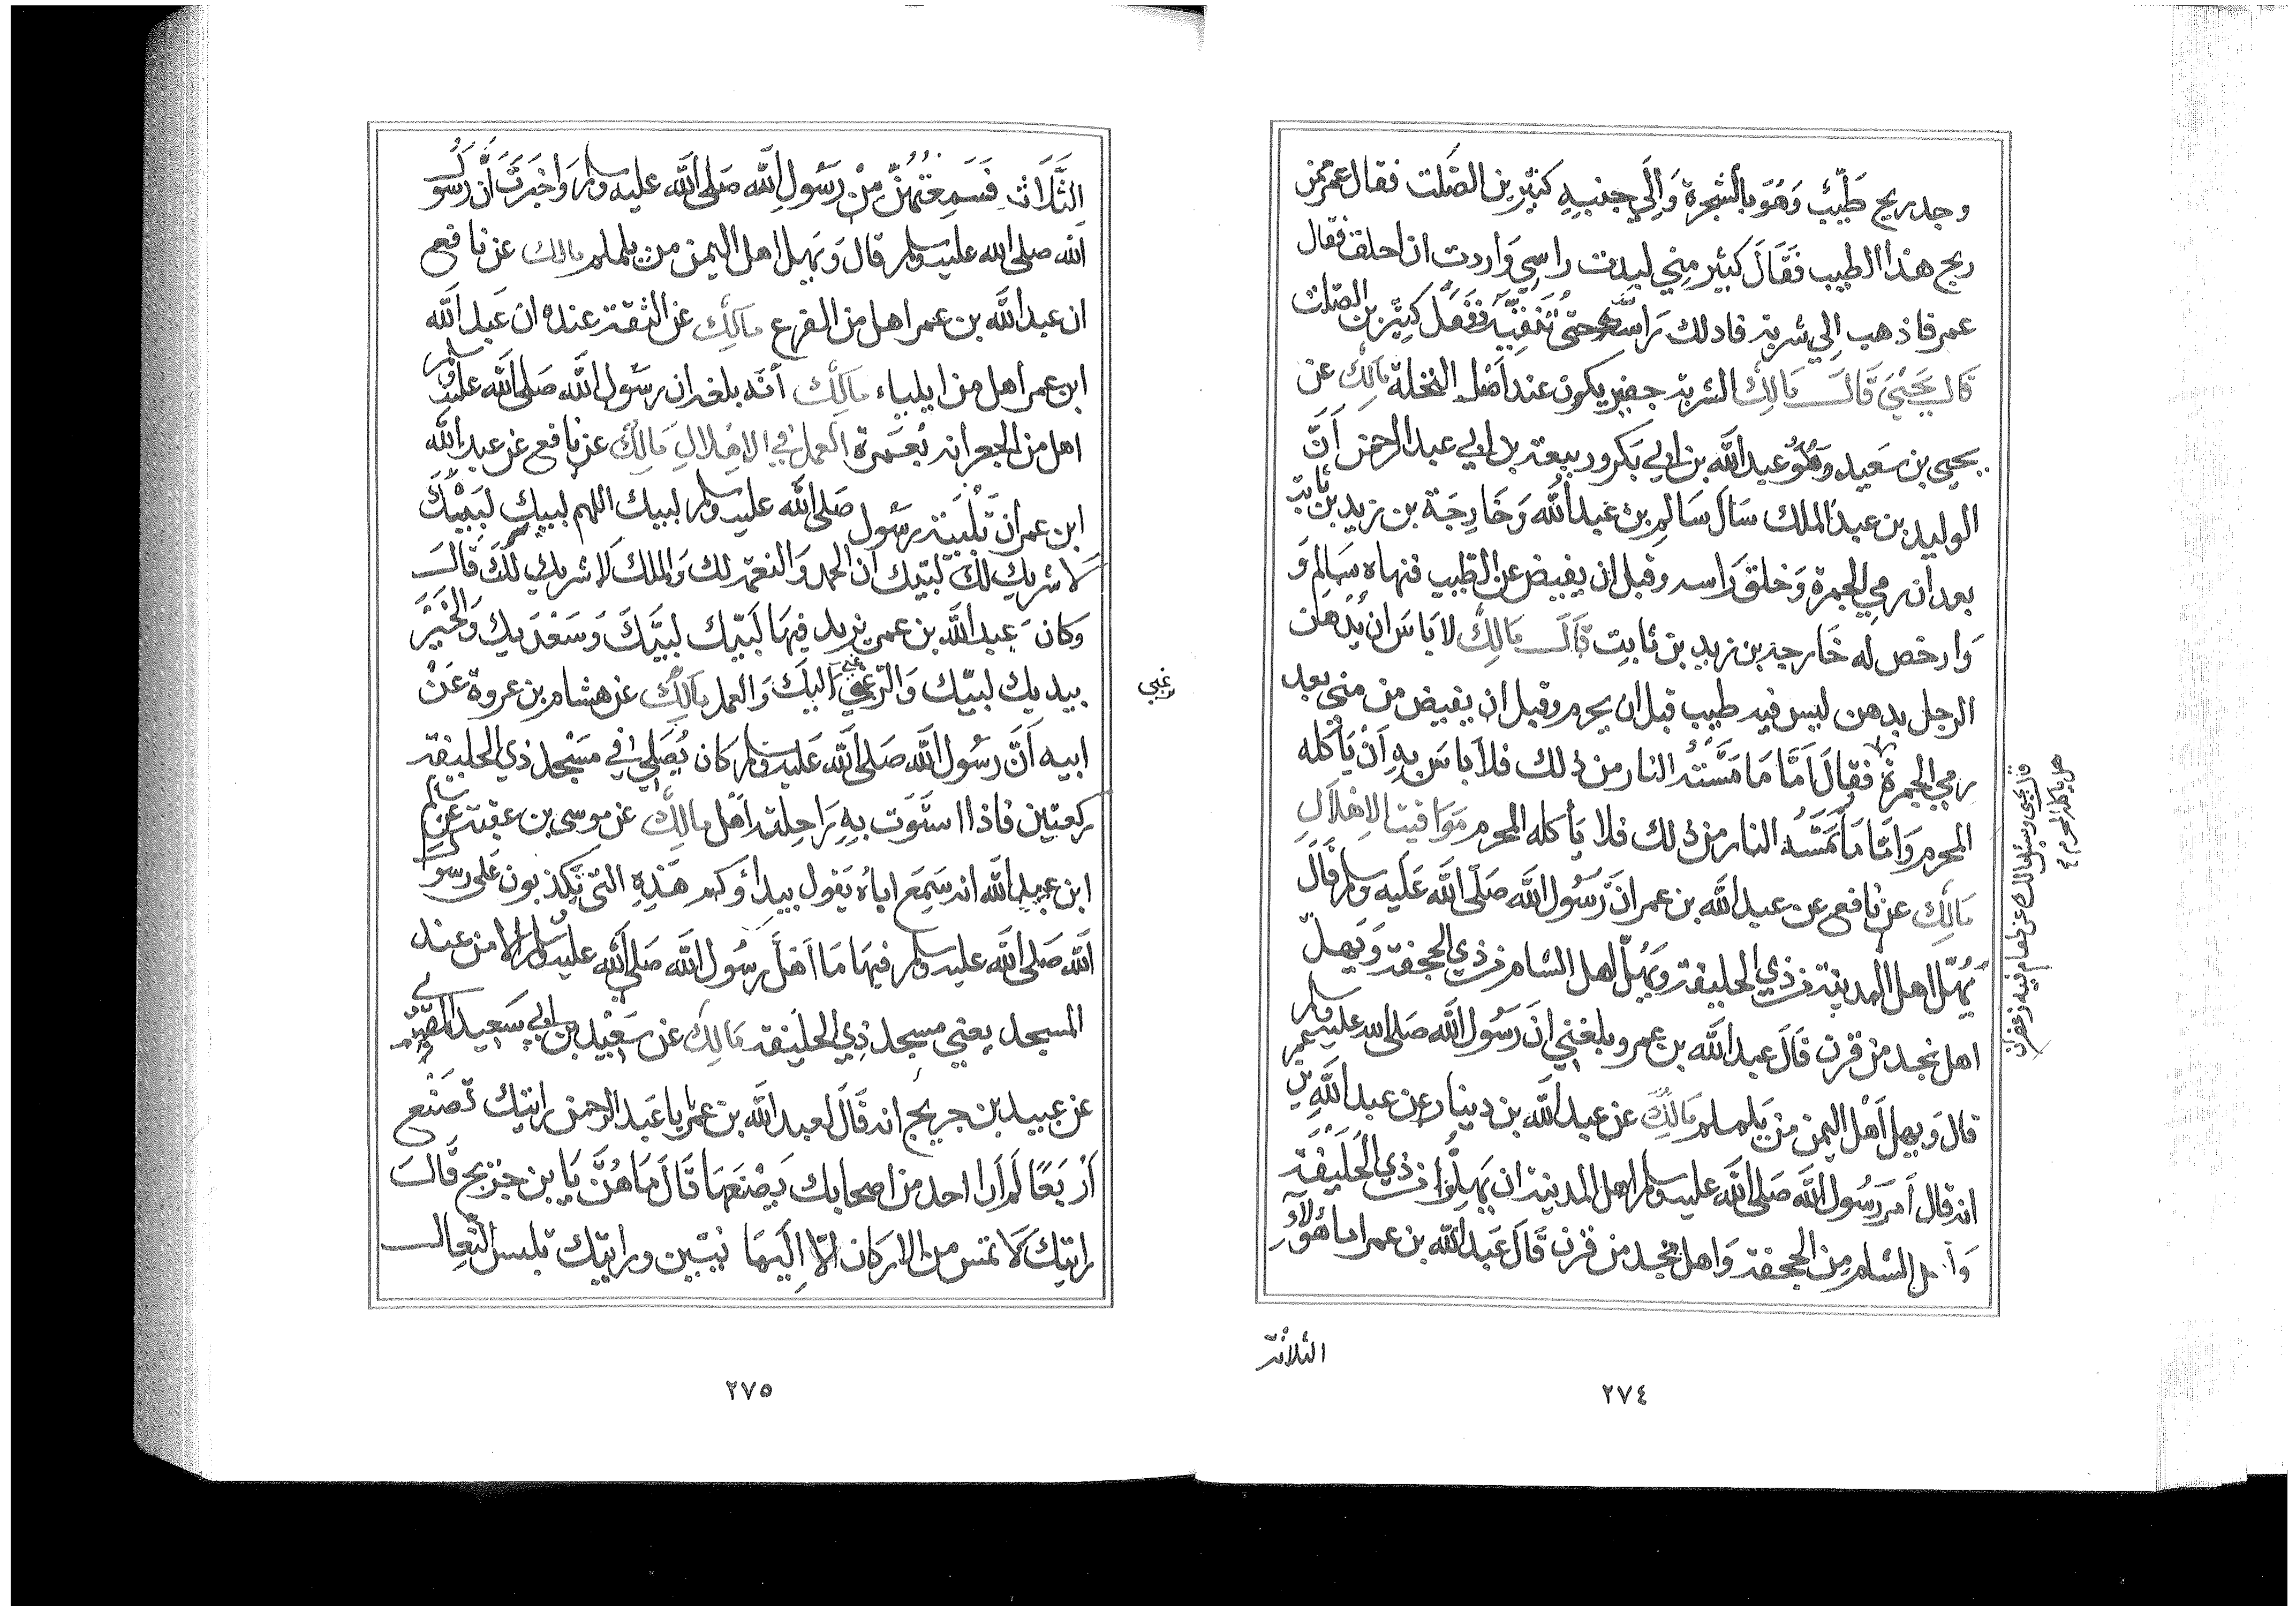 وجد ريح طَيّبٌ وَهُوَ بالشجرة وَالِي جنبِهِ كثير بن الصَّلت فقال عمر ممن
ريح هذا الطيب فَقَالَ كثير مِنِي لبدت راسِي وَاردت ان احلق فقال
عمر فاذهب اِلي شربة فادلك رَاسَكَ حتي تُنَقِيَّهُ فَفَعَلَ كثير بن الصلت
قَالَ يَحْيَيَ قَالَ مَالِكُ الشربة حفير يكون عند اَصْل النخلة مَالِكِ عن
يحيي بن سَعِيد وَ عبد اللَّه بن ابي بَكر وربيعة بن ابي عبد الرحمن اَنَّ
الوليد بن عبد الملك سَاَلَ سَالِم بن عَبد اللَّه وَخَارِجَة بن زيد بن ثابت
بعد ان رمي الجمرة وَحَلقَ رَاسه وقبل ان يفيض عن الطيب فنهاه سَالِم وَ
وَارخص له خَارجة بن زيد بن ثابت قَالَ مَالِكُ لا بَاسَ ان يُدهن
الرجل بدهن ليس فيه طيب قبل ان يحرم وقبل ان يفيض من مني بعد
رمي الجمرة فقالَ اَمَّا مَا مَسَّتْهُ النار من ذلك فلا بَاسَ بهِ اَنْ يَاْكله
المحرم وَامَّا مَا لم تَمَسَّهُ النار من ذلك فلا يَأكله المحرم مَوَاقيت الاِهْلاَلِ
مَالِك عن نافع عن عبد اللَّه بن عمر انَّ رَسُول اللَّه صَلّى اللَّه عَليه وسلم قَالَ
يُهِلّ اهل المدينة من ذي الحليفة ويُهِلّ اهل الشام من ذي الجحفة وَيَهلّ
اهل نجد من قرن قَالَ عبد اللَّه بن عمر وبلغني انَ رَسُول اللَّه صَلى الله عليه وسلم
قال وَيهل اَهْل اليمن من يَلملم مَالِكُ عن عبد اللَّه بن دينار عن عبد اللَّهِ بن عمر
انه قال اَمَر رَسُول اللَّه صَلى اللَّه عليه وسلم اهل المدينة ان يهِلّوا من ذي الحُلَيْفَة
وَاهل الشام من الجحفة وَاهل نجد من قرن قَالَ عَبد اللَّه بن عمر اما هَؤلآءِ
قال يحيى وسئل مالك عن طعام فيه زعفران
هل ياكله المحرم
الثلاثة
٢٧٤
الثَّلاَث فَسَمِعْتُهُنَّ مِنْ رَسُولِ اللَّه صَلى اللَّه عليه وسلم وَاخبَرتُ اَن رَسُول
اللَّه صلى الله عليه وسلم قال وَيهل اهل اليمن من يلملم مالك عن نافع
ان عبد اللَّه بن عمر اهل من الفرع مَالِكُ عن الثقة عنده ان عَبد اللَّه
ابن عمر اهل من ايلياء مَالِكُ اَنَّه بلغه ان رسُول اللَّه صَلى اللَّه عليه وسلم
اهل من الجعرانه بُعَمرة العمل في الاِهْلاَلِ مَالِكُ عن نافع عن عبد اللَّه
ابن عمر انَّ تَلْبيَة رسُول صَلى اللَّه عليه وسلم لبيك اللهم لبيك لبَيْكَ
لَا شريك لَكَ لَبَّيك ان الحمد وَالنعمة لك وَالملك لَا شريك لَكَ قَالَ
وكان عبد اللَّه بن عمر يزيد فِيهَا لَبَيّك لبيَّكَ وَسَعْدَيك وَالخَيْرَ
بيديك لبيّك وَالرغبي اليَكَ وَالعمل مَالِكُ عن هشام بن عروة عَنْ
ابيه اَنَّ رسُول اللَّه صَلى اللَّه عَليه وسلم كان يُصَلي في مَسْجد ذي الحليفة
ركعتين فاذا استَوَت بهِ رَاحِلته اَهَل مَالِكُ عن موسى بن عقبة عن سالم
ابن عبد اللَّه انه سَمِعَ اباه يَقول بيداؤكم هَذِهِ التي تكذبون عَلى رسول
اللَّه صَلى اللَّه عليه وسلم فيهَا مَا اَهَلَّ رسُول اللَّه صَلى اللَّه عليه وسلم الا من عند
المسجد يعني مسجد ذِي الحلَيفة مَالِكُ عن سَعْيد بن ابي سَعِيد المقبري
عن عبيد بن جريج انه قَالَ لعبد اللَّه بن عمر يا ابا عَبد الرحمن رايتك تَصْنَع
اَرْبَعًا لَم اَرا احد من اصحابك يَصْنَعهَا قَالَ مَا هُنَّ يَا بن جريج قَالَ
رايتكَ لَا تمس من الاركان الّا اليمَانيتين ورايتك تلبس النّعِال
رغبي
٢٧٥